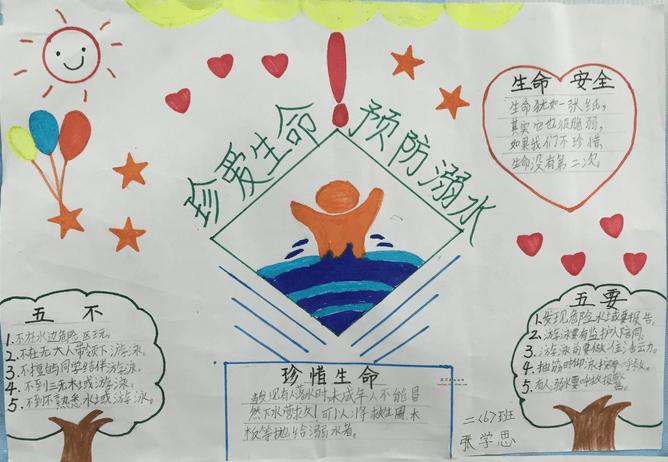 珍爱生命
预防溺水
生命 安全
生命犹如一张纸,
其实它也很脆弱,
如果我们不珍惜,
生命没有第二次。
五 不
1.不在水边危险区玩。
2.不在无大人带领下游泳。
3.不擅自同学结伴游泳。
4.不到三无水域游泳。
5.不到不熟悉水域游泳。
五要
1.发现危险水域要报告。
2.游泳要有监护人陪同。
3.游泳前要做准备
4.抽筋时仰泳
5.有人溺水要呼救报警。
珍惜生命
发现有人落水时,未成年人不能冒
然下水营救!可以将救生圈、木
板等抛给溺水者。
二(6)班
张学思